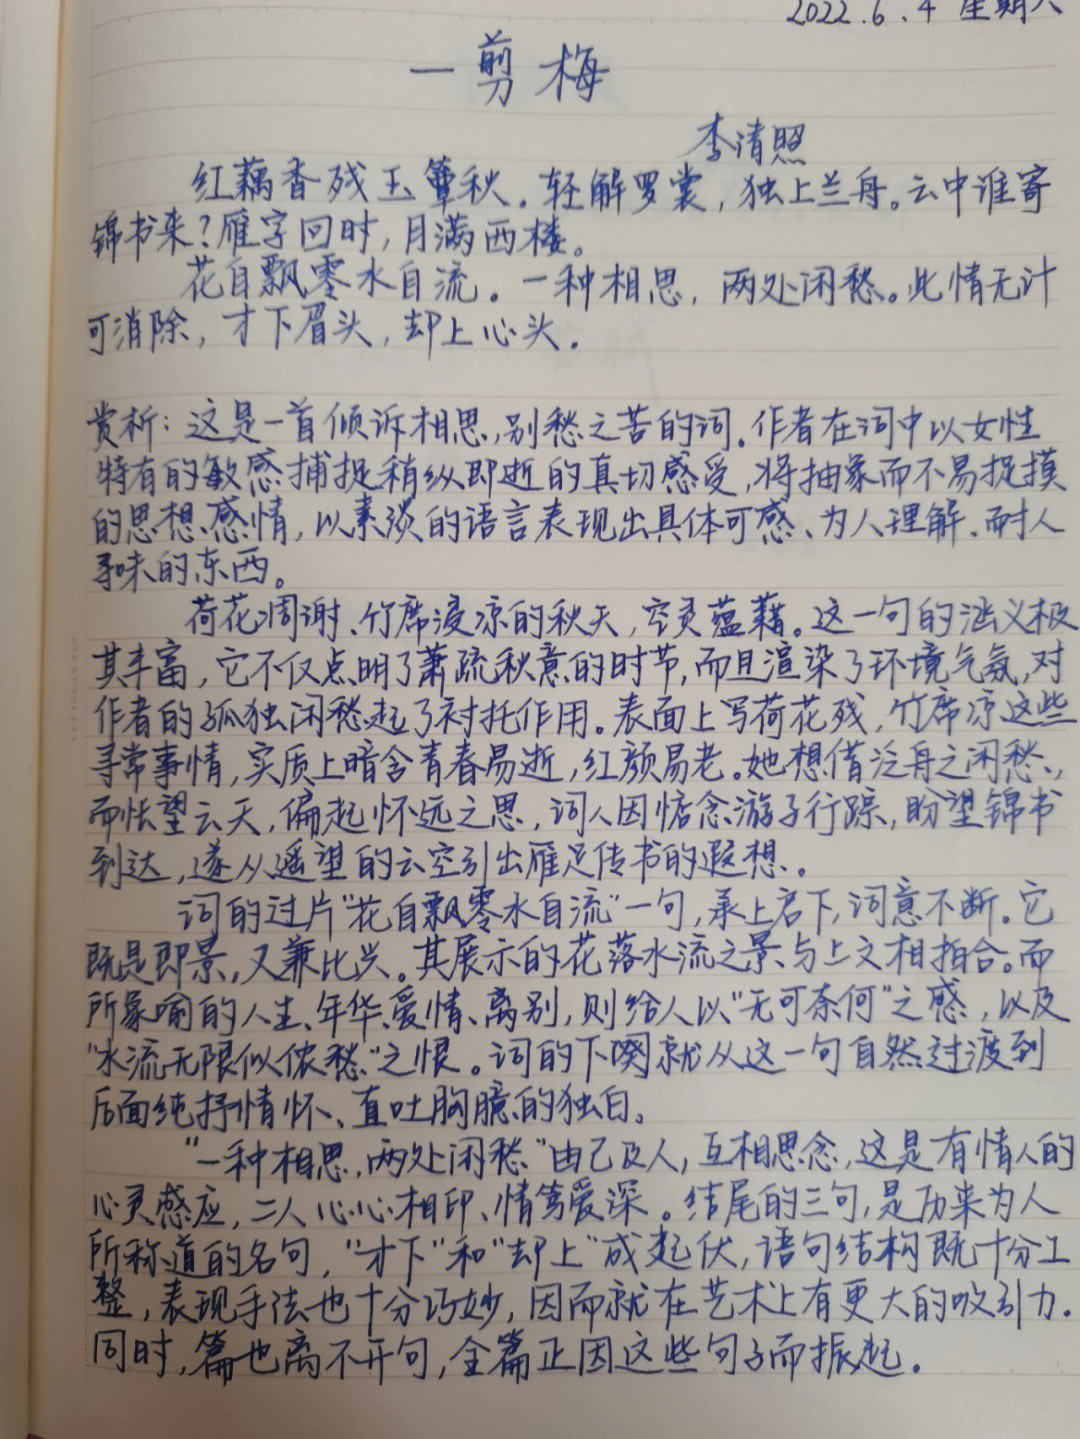 2022.6.4 星期六
一剪梅
李清照
红藕香残玉簟秋。轻解罗裳，独上兰舟。云中谁寄
锦书来？雁字回时，月满西楼。
花自飘零水自流。一种相思，两处闲愁。此情无计
可消除，才下眉头，却上心头。
赏析：这是一首倾诉相思，别愁之苦的词。作者在词中以女性
特有的敏感捕捉稍纵即逝的真切感受，将抽象而不易捉摸
的思想、感情，以素淡的语言表现出具体可感、为人理解、耐人
寻味的东西。
荷花凋谢、竹席浸凉的秋天，空灵蕴藉。这一句的涵义极
其丰富，它不仅点明了萧疏秋意的时节，而且渲染了环境气氛，对
作者的孤独闲愁起了衬托作用。表面上写荷花残，竹席凉这些
寻常事情，实质上暗含青春易逝，红颜易老。她想借泛舟之闲愁，
而怅望云天，偏起怀远之思，词人因惦念游子行踪，盼望锦书
到达，遂从遥望的云空引出雁足传书的遐想。
词的过片“花自飘零水自流”一句，承上启下，词意不断。它
既是即景，又兼比兴。其展示的花落水流之景与上文相拍合。而
所象喻的人生、年华、爱情、离别，则给人以“无可奈何”之感，以及
“水流无限似侬愁”之恨。词的下阕就从这一句自然过渡到
后面纯抒情怀、直吐胸臆的独白。
“一种相思，两处闲愁”由己及人，互相思念，这是有情人的
心灵感应，二人心心相印、情笃爱深。结尾的三句，是历来为人
所称道的名句，“才下”和“却上”成起伏，语句结构既十分工
整，表现手法也十分巧妙，因而就在艺术上有更大的吸引力。
同时，篇也离不开句，全篇正因这些句子而振起。